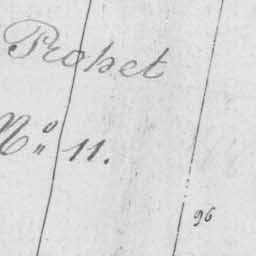 Probet
No 11.
96